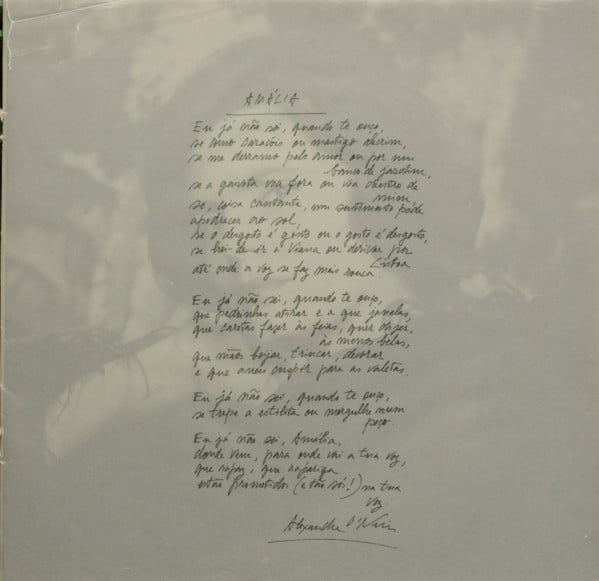 AMÁLIA
Eu já não sei, quando te ouço,
se como caracóis ou mastigo alecrim,
se me derramo pelo amor ou por um
banco de jardim,
se a gaivota voa fora ou voa dentro de
mim,
se, coisa cantante, um sentimento pode
apodrecer ao sol,
se o desgosto é gosto ou o gosto é desgosto,
se hei-de ir a Viana ou derivar por
Lisboa
até onde a voz se faz mais rouca.
Eu já não sei, quando te ouço,
que pedrinhas atirar e a que janelas,
que caretas fazer às feias, quer dizer,
às menos belas,
que mãos beijar, trincar, devorar
e que aneis cuspir para as valetas.
Eu já não sei, quando te ouço,
se trepe a estilita ou mergulhe num
poço.
Eu já não sei, Amália,
donde vem, para onde vai a tua voz,
que rapaz, que rapariga
estão prometidos (e tão sós!) na tua
voz.
Alexandre O'Neill